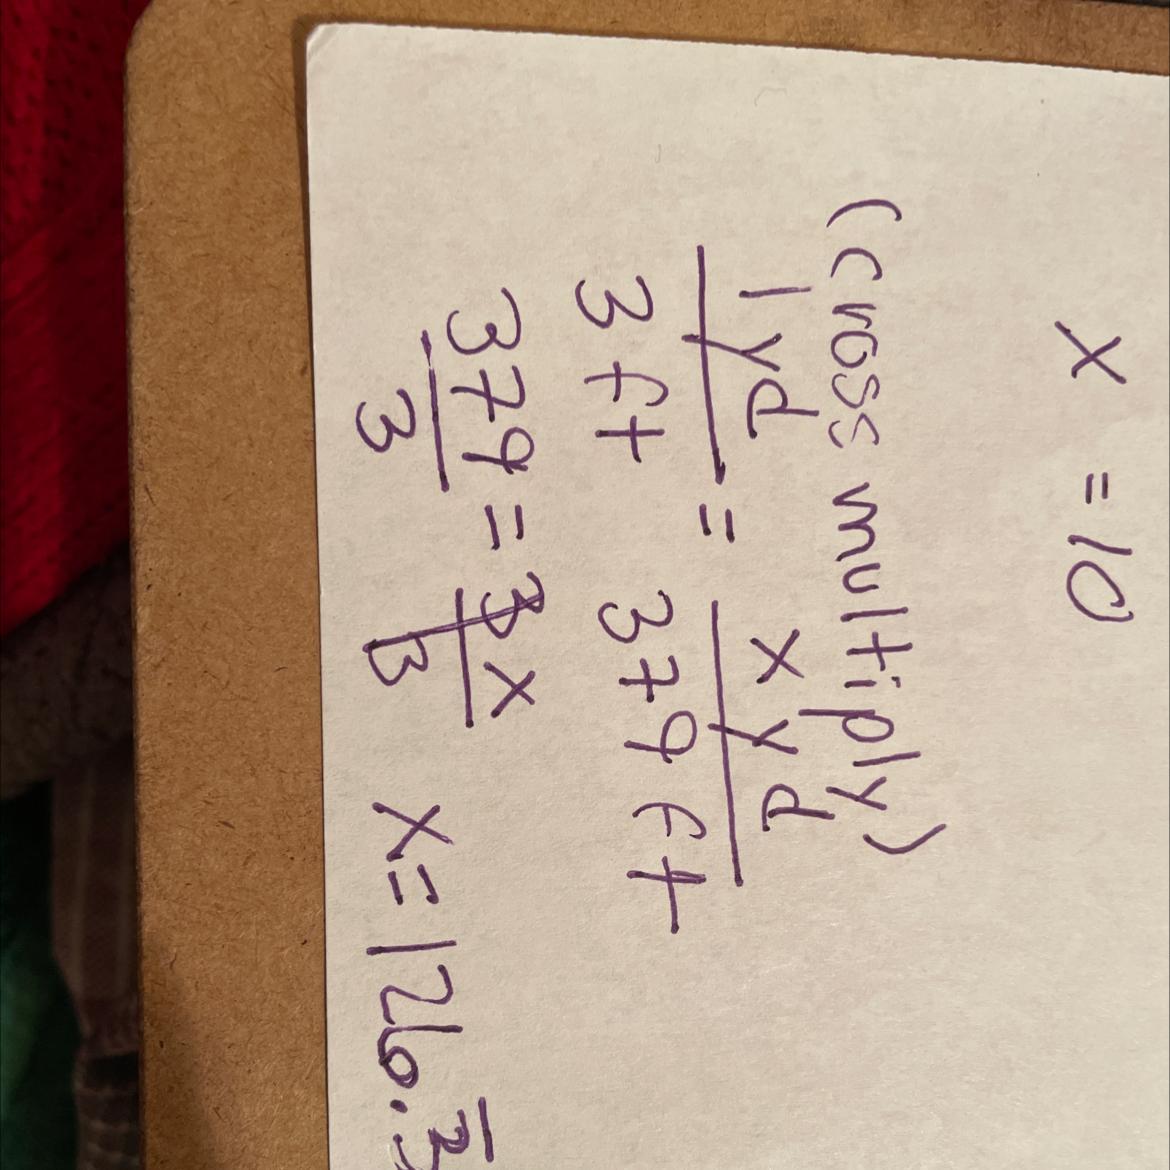 x = 10
(cross multiply)
1yd = x yd
3 ft 379 ft
379 = 3x
3 3
x = 126.3̅